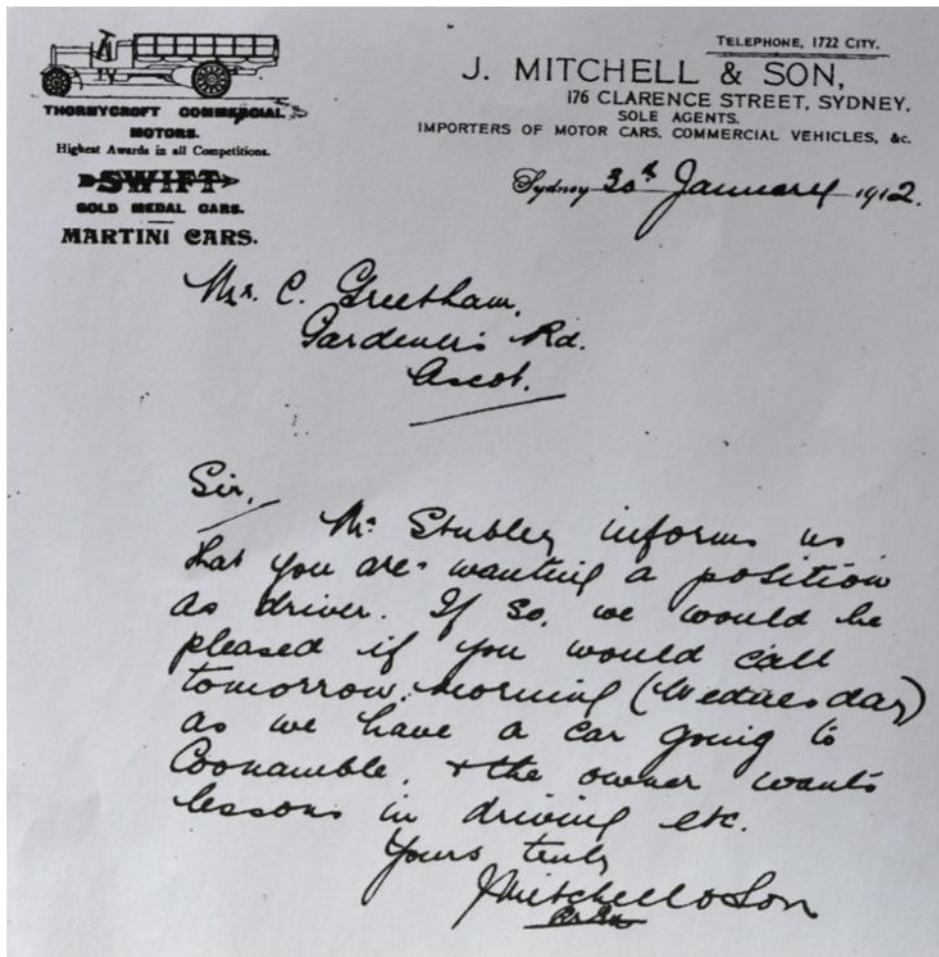 THORNYCROFT COMMERCIAL
MOTORS.
Highest Awards in all Competitions.
SWIFT
GOLD MEDAL CARS.
MARTINI CARS.
TELEPHONE, 1722 CITY.
J. MITCHELL & SON,
176 CLARENCE STREET, SYDNEY,
SOLE AGENTS.
IMPORTERS OF MOTOR CARS, COMMERCIAL VEHICLES, &c.
Sydney 30th January 1912.
Mr. C. Greetham,
Gardener's Rd.
Ascot.
Sir,
Mr Stubley informs us
that you are wanting a position
as driver. If so, we would be
pleased if you would call
tomorrow morning (Wednesday)
as we have a car going to
Coonamble, & the owner wants
lessons in driving etc.
Yours truly
J Mitchell & Son